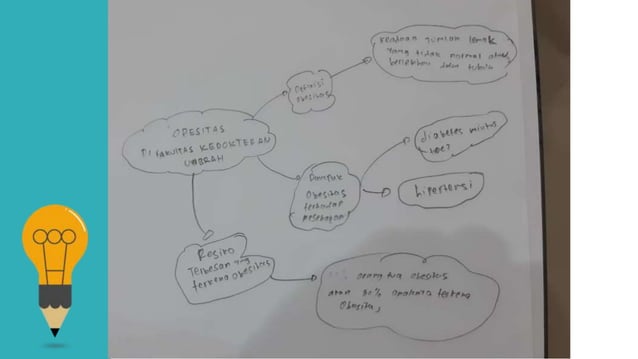 OBESITAS
DI FAKULTAS KEDOKTERAN
UMBRAH
Definisi
obesitas
Keadaan jumlah lemak
yang tidak normal atau
berlebihan dalam tubuh
Dampak
obesitas
terhadap
kesehatan
diabetes
hipertensi
Resiko
Terbesar yg
terkena obesitas
orang tua obesitas
akan 80% anaknya terkena
Obesitas